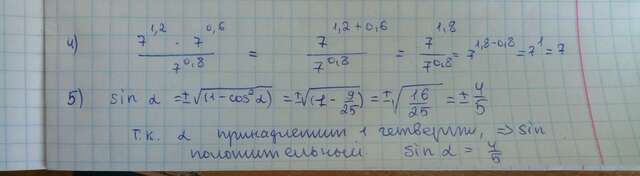 4) (7^1,2 · 7^0,6)/7^0,8 = 7^(1,2+0,6)/7^0,8 = 7^1,8/7^0,8 = 7^(1,8-0,8) = 7^1 = 7
5) sin α = ±√(1-cos²α) = ±√(1 - 9/25) = ±√(16/25) = ± 4/5
т.к. α принадлежит 1 четверти, ⇒ sin
положительный sin α = 4/5